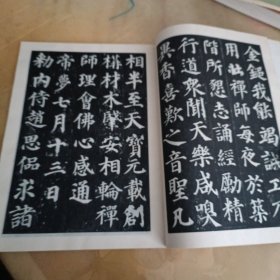 金鎚我能竭誠
用壯禪師每夜於築
階所懇志誦經勵精
行道衆聞天樂咸嗅
異香喜歎之音聖凡
相半至天寶元載創
構材木肇安相輪禪
師理會佛心感通
帝夢七月十三日
勑內侍趙思侃求諸